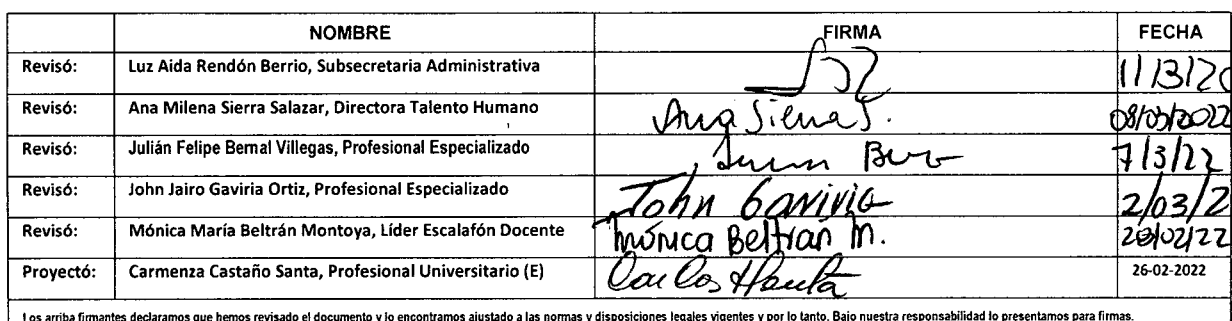 NOMBRE FIRMA FECHA
Revisó: Luz Aida Rendón Berrio, Subsecretaria Administrativa
Revisó: Ana Milena Sierra Salazar, Directora Talento Humano Ana Sierra S. 08/03/2022
Revisó: Julián Felipe Bernal Villegas, Profesional Especializado 7/3/22
Revisó: John Jairo Gaviria Ortiz, Profesional Especializado John Gaviria 2/03/2
Revisó: Mónica María Beltrán Montoya, Líder Escalafón Docente Mónica Beltrán M. 28/02/22
Proyectó: Carmenza Castaño Santa, Profesional Universitario (E) 26-02-2022
Los arriba firmantes declaramos que hemos revisado el documento y lo encontramos ajustado a las normas y disposiciones legales vigentes y por lo tanto. Bajo nuestra responsabilidad lo presentamos para firmas.